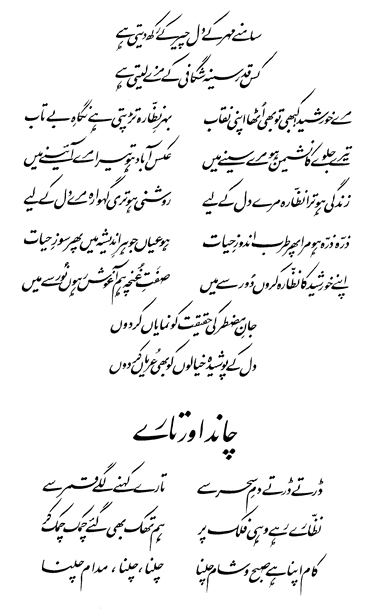 سامنے مہر کے دل چیر کے رکھ دیتی ہے
کس قدر سینہ شگافی کے مزے لیتی ہے
مرے خورشید! کبھی تو بھی اُٹھا اپنی نقاب بہرِ نظّارہ تڑپتی ہے نگاہِ بے تاب
تیرے جلوے کا نشیمن ہو مرے سینے میں عکس آباد ہو تیرا مرے آئینے میں
زندگی ہو ترا نظّارہ مرے دل کے لیے روشنی ہو تری گہوارہ مرے دل کے لیے
ذرّہ ذرّہ ہو مرا پھر طرب اندوزِ حیات ہو عیاں جوہرِ اندیشہ میں پھر سوزِ حیات
اپنے خورشید کا نظّارہ کروں دُور سے میں صفتِ غنچہ ہم آغوش رہوں نُور سے میں
جانِ مضطر کی حقیقت کو نمایاں کر دوں
دل کے پوشیدہ خیالوں کو بھی عُریاں کر دوں
چاند اور تارے
ڈرتے ڈرتے دمِ سحر سے تارے کہنے لگے قمر سے
نظّارے رہے وہی فلک پر ہم تھک بھی گئے چمک چمک کر
کام اپنا ہے صبح و شام چلنا چلنا، چلنا، مدام چلنا